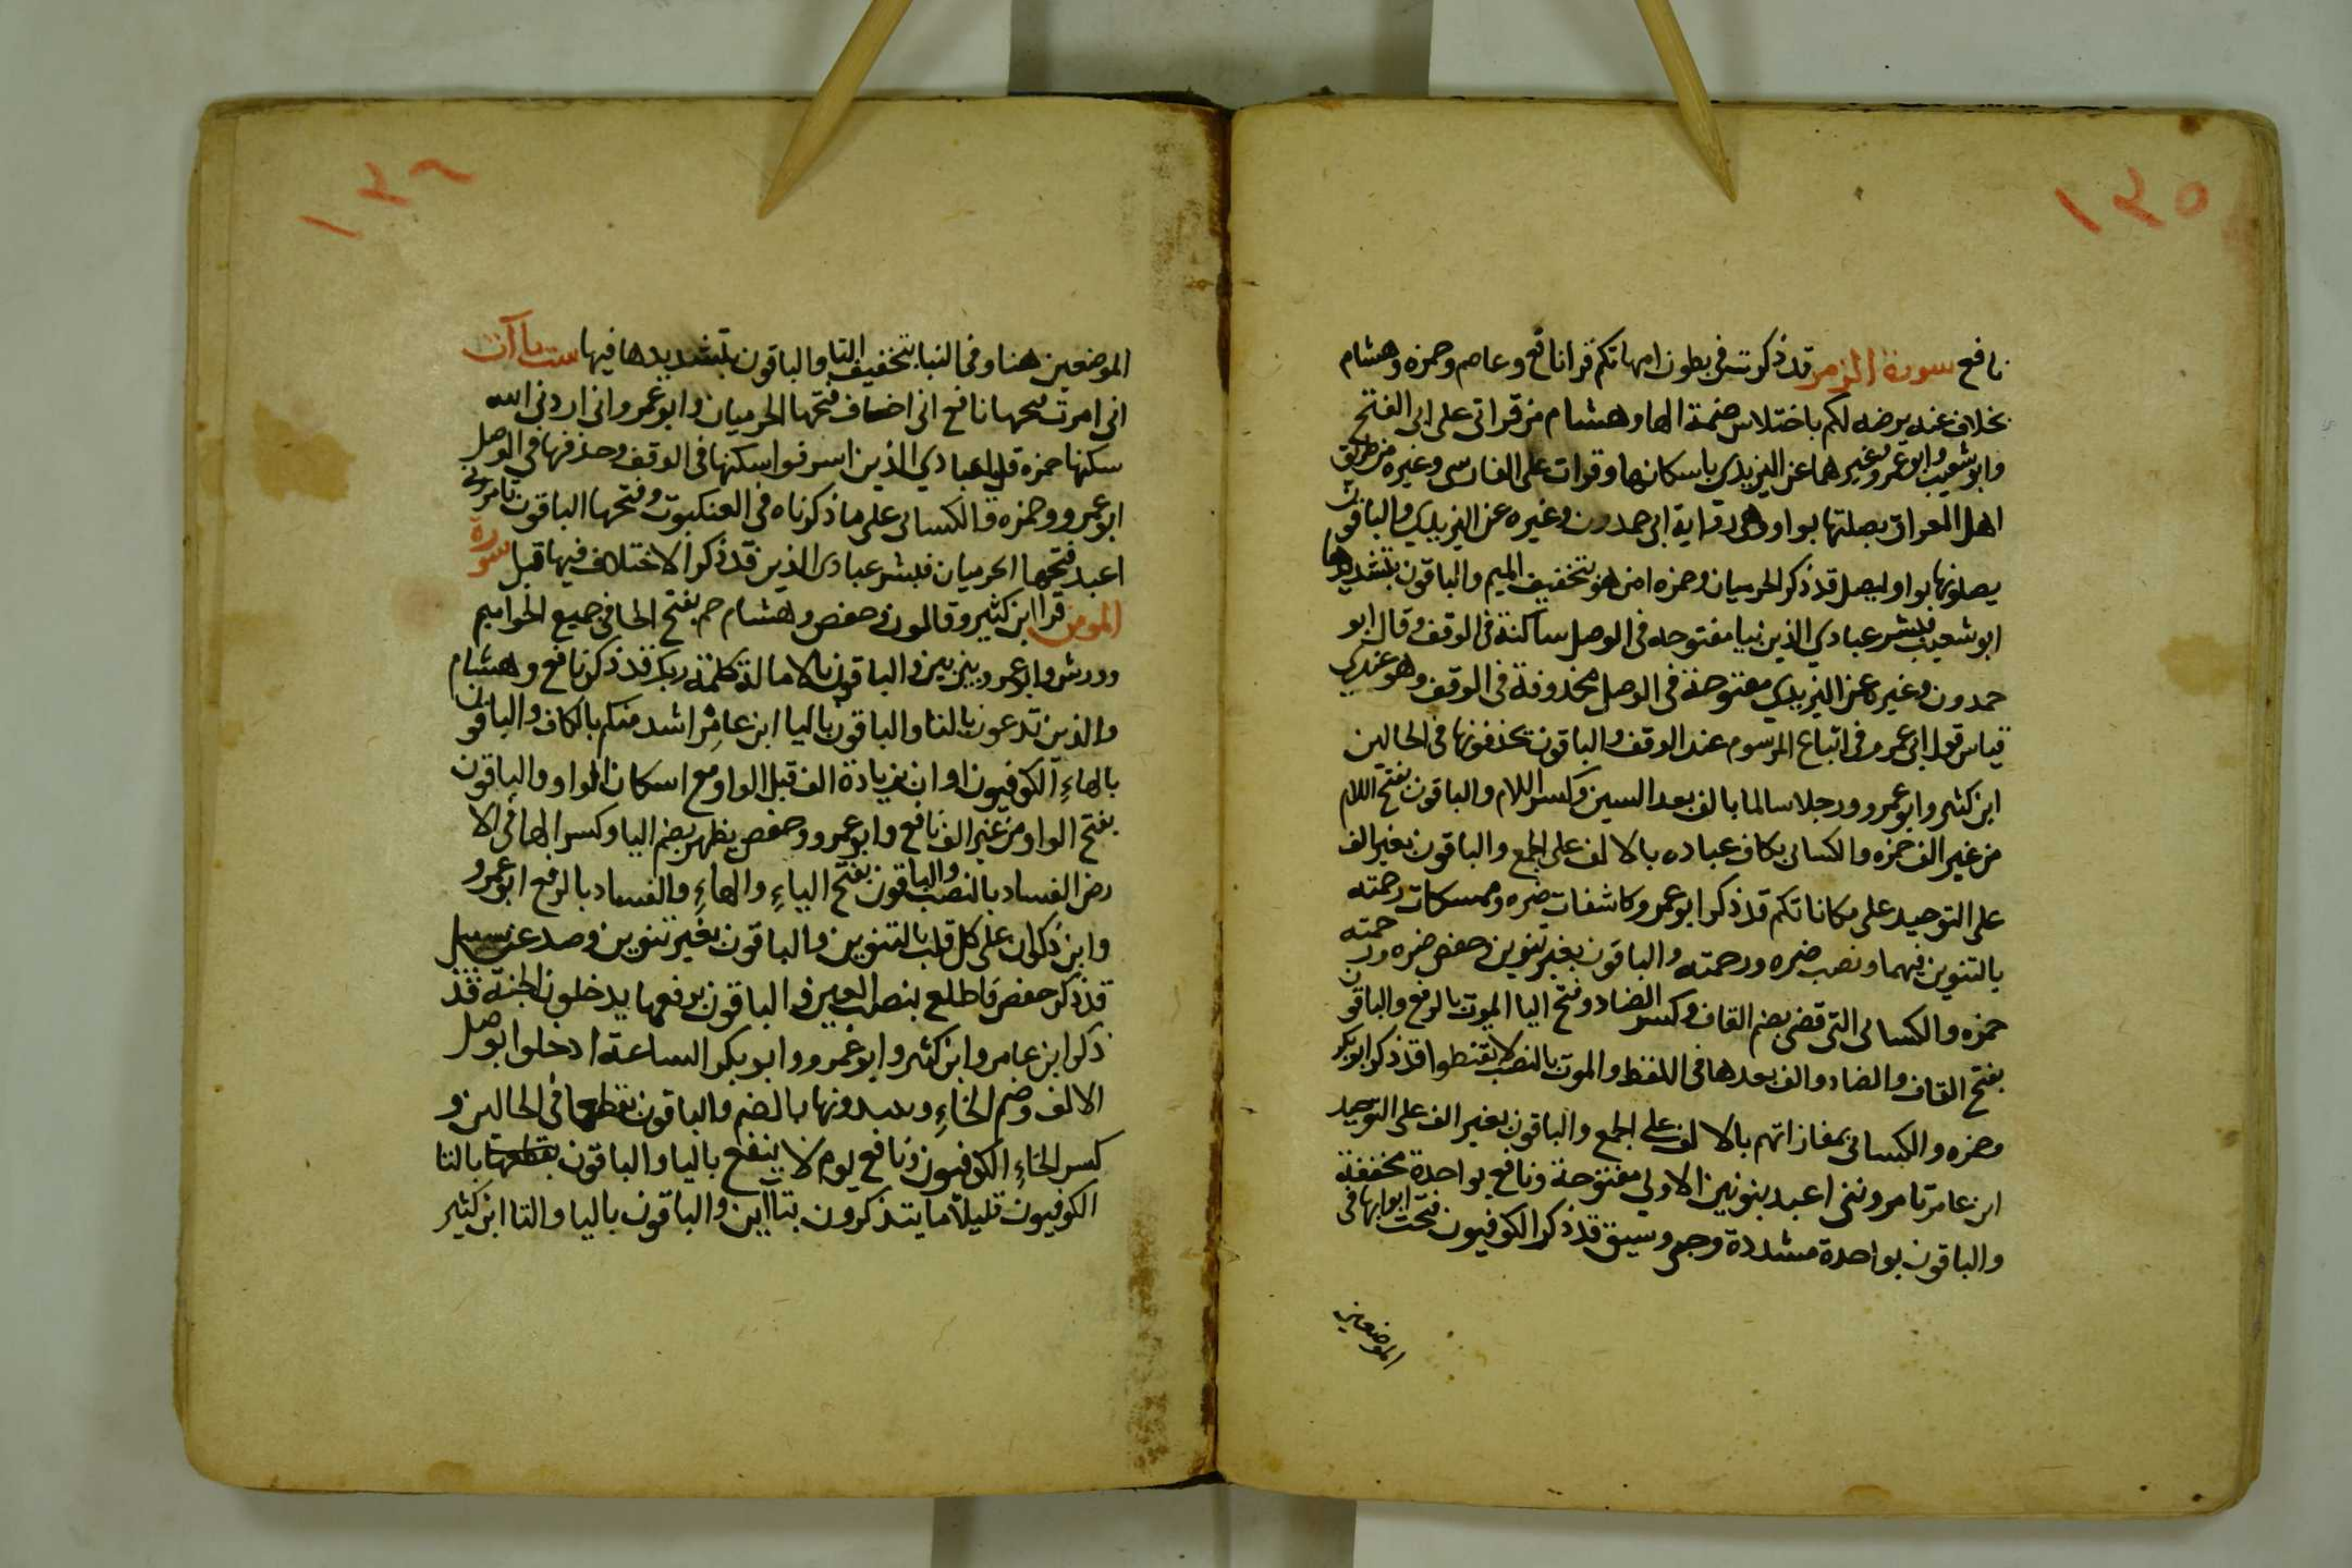 ١٣٥
نافع سورة الزمر قد ذكرت في بطون امهاتكم قرا نافع وعاصم وحمزه وهشام
بخلاف عنه يرضه لكم باختلاس ضمة الها وهشام من قراتى على ابى الفتح
وابو شعيب وابو عمر وغيرهما عن اليزيدى باسكانها وقرات على الفارسى وغيره من طريق
اهل العراق بصلتها بواو وهى رواية ابى حمدون وغيره عن اليزيدى والباقون
يصلونها بواو ليصل قد ذكر الحرميان وحمزه امن هو بتخفيف الميم والباقون بتشديدها
ابو شعيب فبشر عبادي الذين بيا مفتوحه فى الوصل ساكنة فى الوقف وقال ابو
حمدون وغيره عن اليزيدى مفتوحة فى الوصل محذوفة فى الوقف وهو عندى
قياس قول ابى عمرو فى اتباع المرسوم عند الوقف والباقون بحذفونها فى الحالين
ابن كثير وابو عمرو ورجلا سالما بالف بعد السين وكسر اللام والباقون بفتح اللام
من غير الف حمزه والكسائى بكاف عباده بالالف على الجمع والباقون بغير الف
على التوحيد على مكاناتكم قد ذكر ابو عمرو كاشفات ضره وممسكات رحمته
بالتنوين فيهما ونصب ضره ورحمته والباقون بغير تنوين وخفض ضره ورحمته
حمزه والكسائى التى قضى بضم القاف وكسر الضاد وفتح اليا الموت بالرفع والباقون
بفتح القاف والضاد والف بعدها فى اللفظ والموت بالنصب لا تقنطوا قد ذكر ابو بكر
وحمزه والكسائى بمفازاتهم بالالف على الجمع والباقون بغير الف على التوحيد
ابن عامر تامروننى اعبد بنونين الاولى مفتوحة ونافع بواحدة مخففة
والباقون بواحدة مشددة وجى وسيق قد ذكر الكوفيون فتحت ابوابها فى
الموضعين
١٣٦
الموضعين هنا وفى النبا بتخفيف التا والباقون بتشديدها فيها ست ياآت
انى امرت فتحها نافع انى اخاف فتحها الحرميان وابو عمرو انى ارادنى الله
سكنها حمزه قل يا عبادي الذين اسرفوا سكنها فى الوقف وحذفها فى الوصل
ابو عمرو وحمزه والكسائى على ما ذكرناه فى العنكبوت وفتحها الباقون تامرونى
اعبد فتحها الحرميان فبشر عبادى الذين قد ذكر الاختلاف فيها قبل سورة
المومن قرا ابن كثير وقالون وحفص وهشام حم بفتح الحا فى جميع الحواميم
وورش وابو عمرو بين بين والباقون بالامالة كلمة ربك قد ذكر نافع وهشام
والذين تدعون بالتا والباقون باليا ابن عامر اشد منكم بالكاف والباقون
بالهاء الكوفيون او ان بزيادة الف قبل الواو مع اسكان الواو والباقون
بفتح الواو من غير الف نافع وابو عمرو وحفص يظهر بضم اليا وكسر الها فى الا
رض الفساد بالنصب والباقون بفتح الياء والهاء والفساد بالرفع ابو عمرو
وابن ذكوان على كل قلب بالتنوين والباقون بغير تنوين وصد عن السبيل
قد ذكر حفص فاطلع بنصب العين والباقون برفعها يدخلون الجنة قد
ذكر ابن عامر وابن كثير وابو عمرو وابو بكر الساعة ادخلوا بوصل
الالف وضم الخاء ويبدونها بالضم والباقون بقطعها فى الحالين و
كسر الخاء الكوفيون ونافع يوم لا ينفع باليا والباقون بالتا
الكوفيون قليلا ما يتذكرون بتاآين والباقون باليا والتا ابن كثير